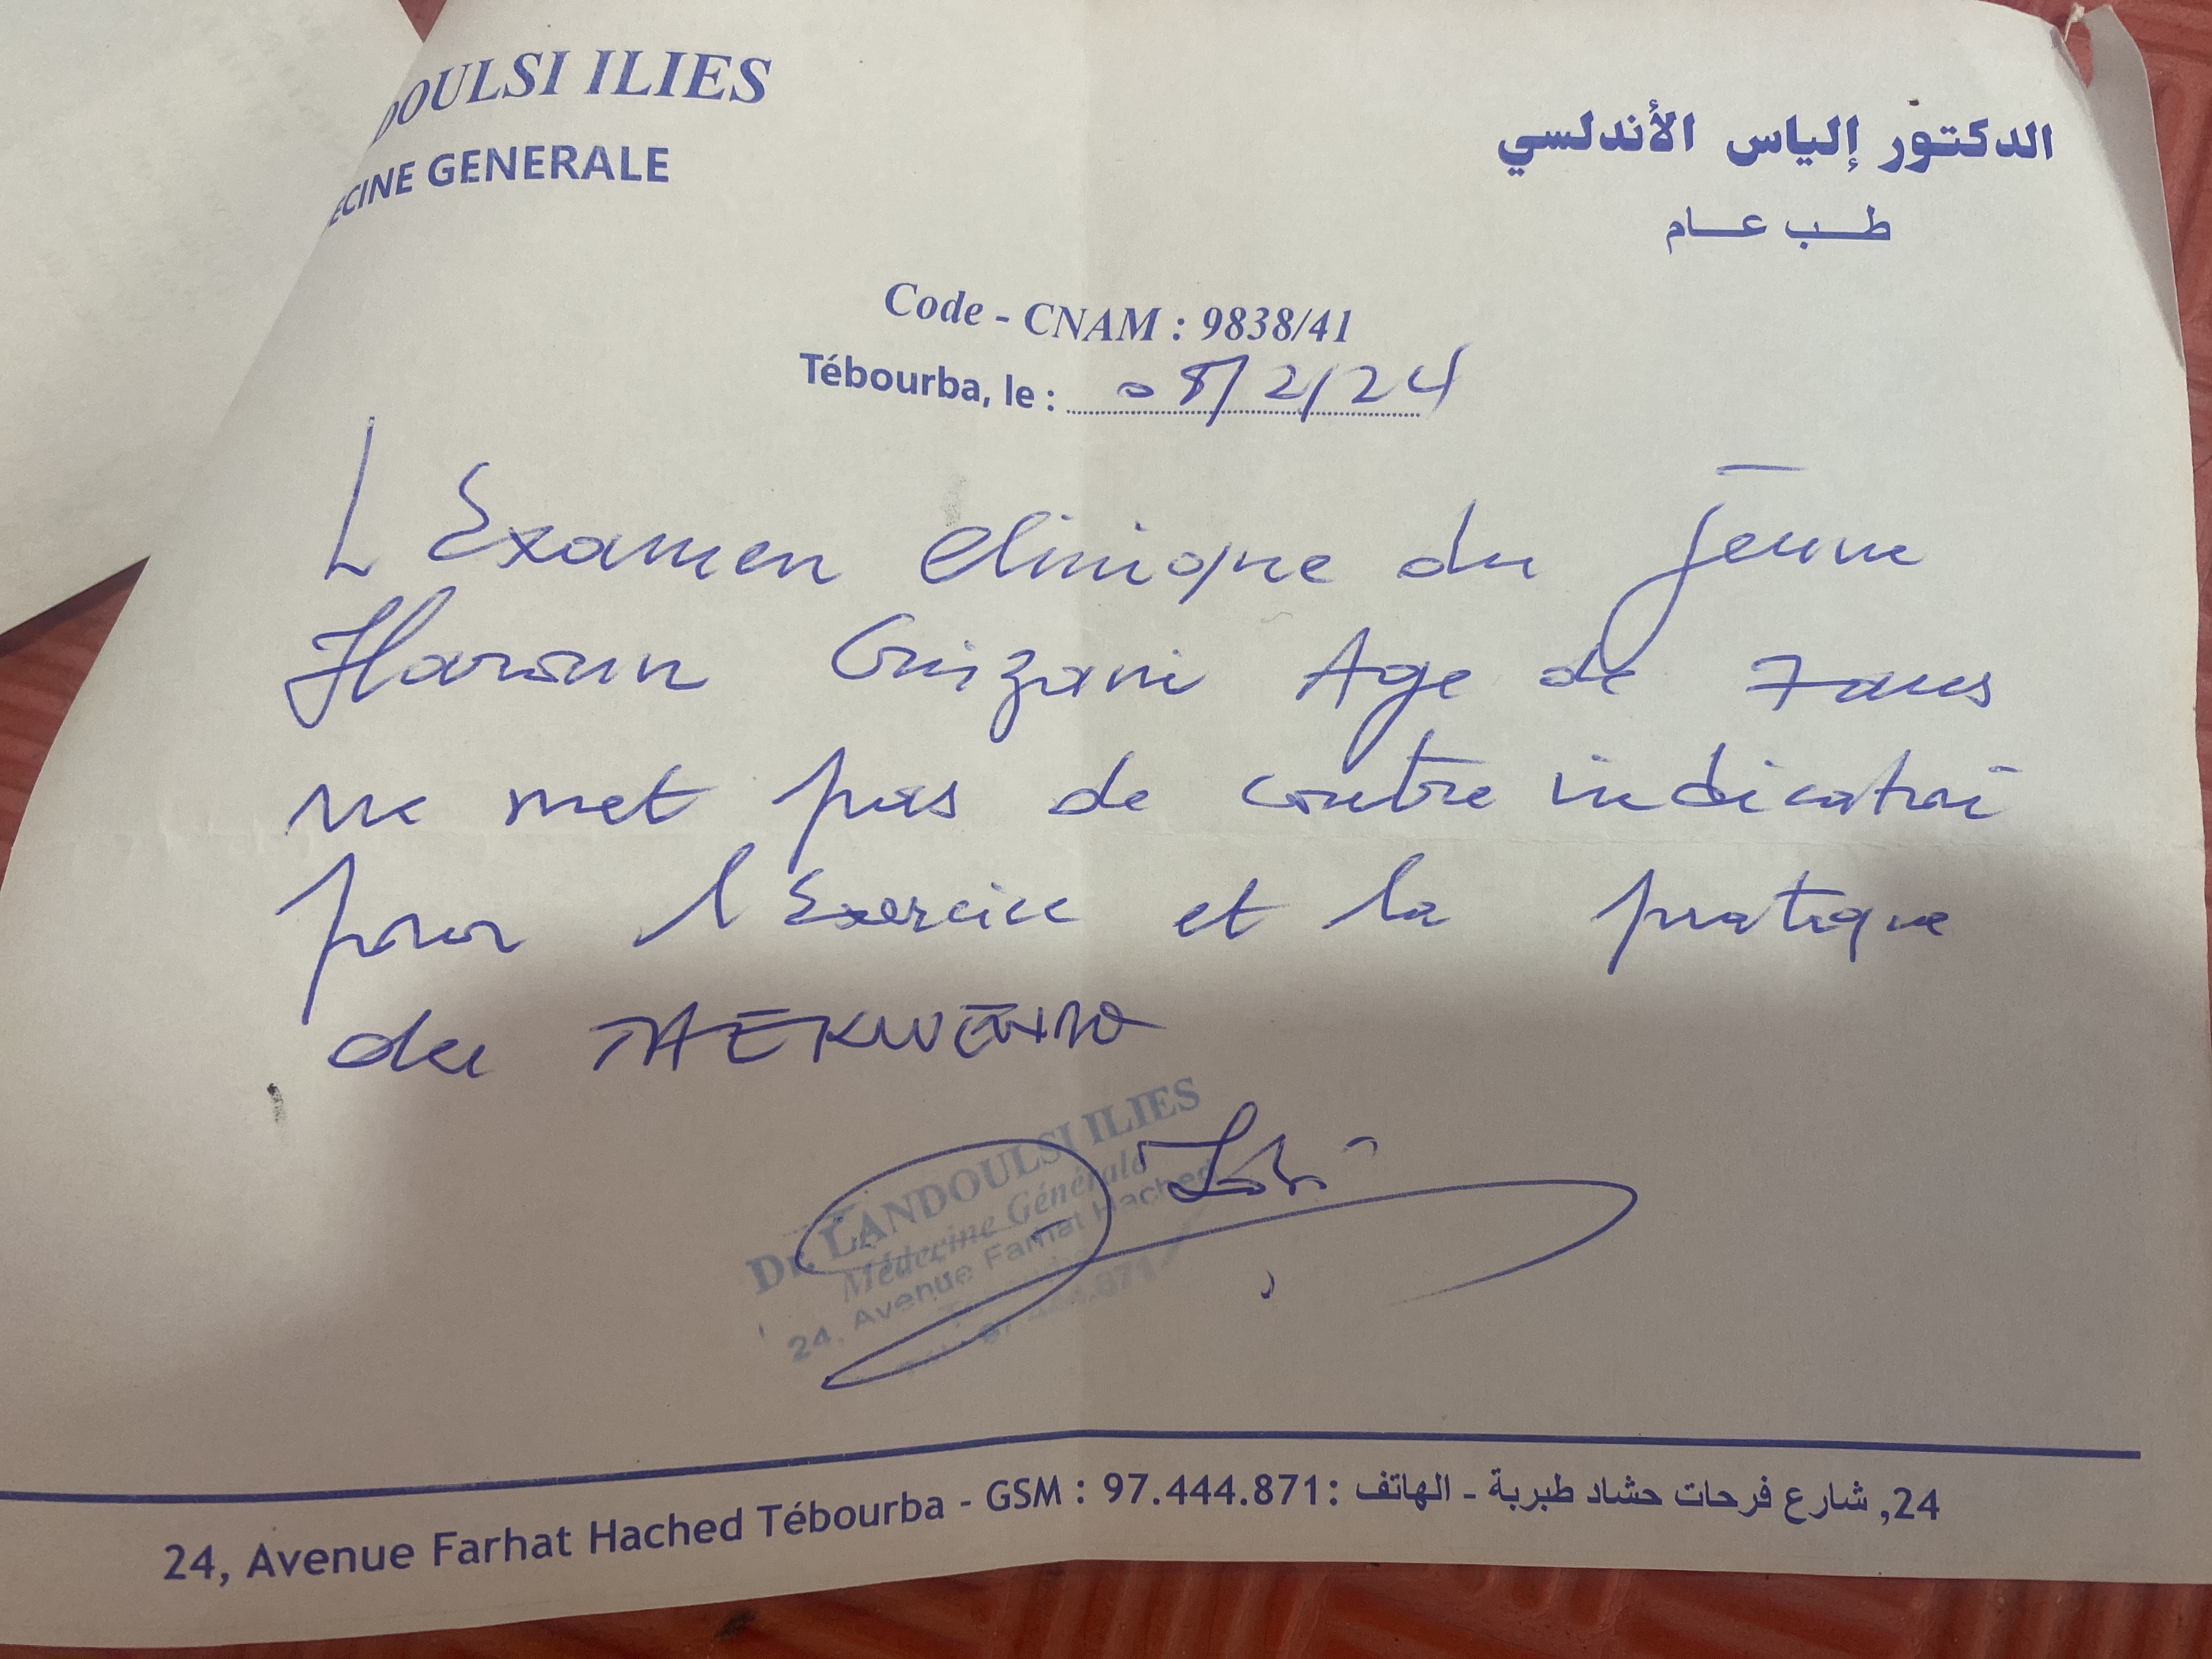 DOULSI ILIES
ECINE GENERALE
الدكتور إلياس الأندلسي
طب عام
Code - CNAM : 9838/41
Tébourba, le : 08/2/24
L Examen Clinique du jeune
Haroun Guizani Age de 7 ans
ne met pas de contre indication
pour l'Exercice et la pratique
du
Dr. LANDOULSI ILIES
Médecine Générale
24, Avenue Farhat Hached
24, Avenue Farhat Hached Tébourba - GSM : 97.444.871 : الهاتف - 24, شارع فرحات حشاد طبربة